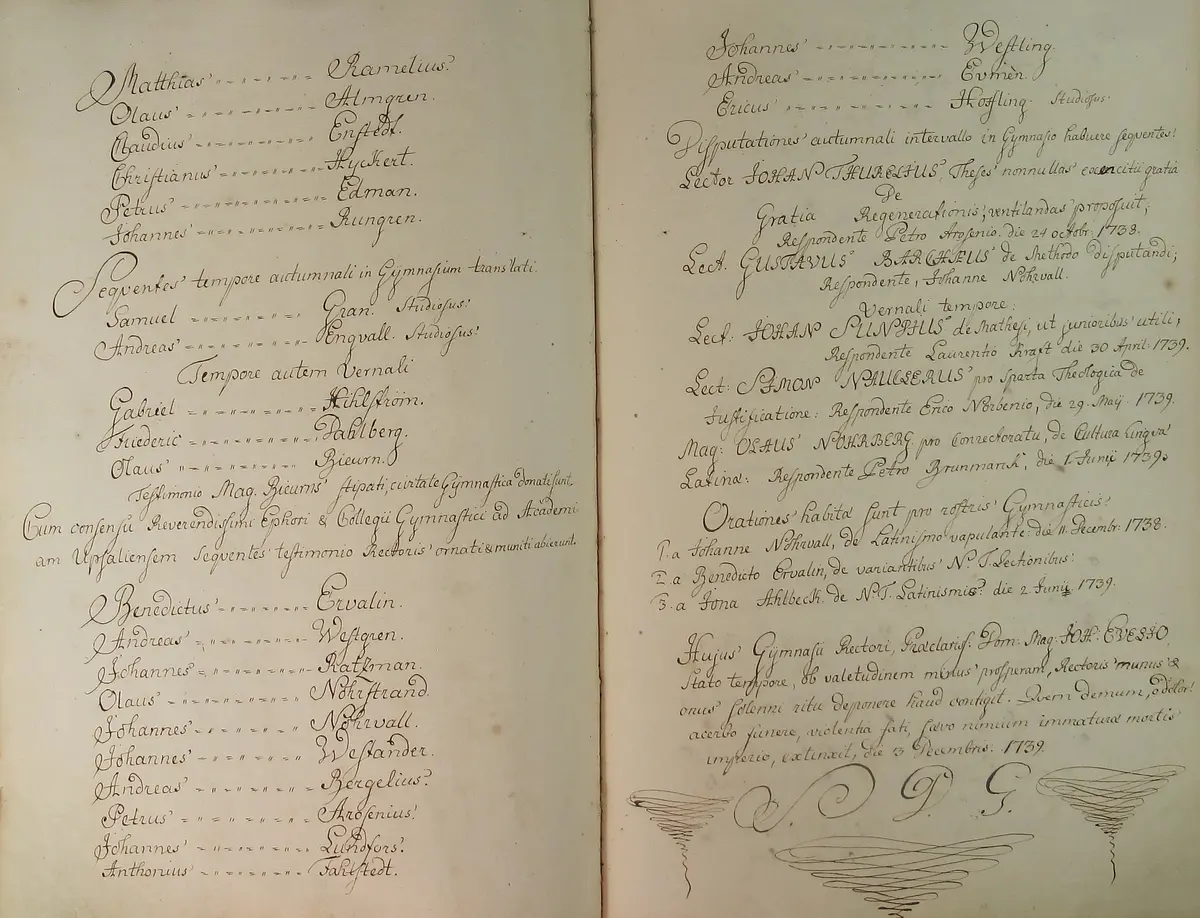 Matthias Ramelius.
Olaus Almgren.
Claudius Enstedt.
Christianus Hyckert.
Petrus Edman.
Johannes Rungren.
Seqventes tempore autumnali in Gymnasium translati.
Samuel Gran. Studiosus.
Andreas Engvall. Studiosus.
Tempore autem Vernali
Gabriel Hihlström.
Friederic Dahlberg.
Olaus Bieurn.
Testimonio Mag. Bieurns stipati, civitate Gymnastica donati sunt
Cum consensu Reverendissimi Ephori & Collegii Gymnastici ad Academi
am Upsaliensem seqventes testimonio Rectoris ornati & muniti abierunt.
Benedictus Ervalin.
Andreas Westgren.
Johannes Ratzman.
Olaus Nohrstrand.
Johannes Nohrvall.
Johannes Westander.
Andreas Bergelius.
Petrus Arosenius.
Johannes Lundfors.
Anthonius Fahlstedt.
Johannes Westling.
Andreas Evmén.
Ericus Hoffling. Studiosus.
Disputationes autumnali intervallo in Gymnasio habuere seqventes:
Lector JOHAN THURELIUS, Theses nonnullas exercitii gratia
De
Gratia Regenerationis, ventilandas proposuit,
Respondente Petro Arosenio. die 24 octobr: 1738.
Lect. GUSTAVUS BARCHÆUS de Methodo Disputandi;
Respondente, Johanne Nohrvall.
Vernali tempore;
Lect. JOHAN SUNDIUS de Mathesi, ut junioribus utili,
Respondente Laurentio Kraft die 30 April 1739.
Lect: SIMON NAUCLERUS pro Sparta Theologica de
Justificatione: Respondente Erico Norbenio, die 29. Maij. 1739.
Mag: OLAUS NOHRBERG pro Conrectoratu, de Cultura Lingvæ
Latinæ: Respondente Petro Brunmarck, die 1. Junij 1739.
Orationes habitæ sunt pro rostris Gymnasticis:
1. a Johanne Nohrvall, de Latinismo vapulante die 11. Decembr. 1738.
2. a Benedicto Ervalin, de variantibus N. T. Lectionibus:
3. a Jona Ahlbeck. de N. T. Latinismis. die 2. Junij 1739.
Hujus Gymnasii Rectori, Præclariss: Dom: Mag: JOH: EVESIO,
stato tempore, ob valetudinem minus prosperam, Rectoris munus &
onus solenni ritu deponere haud contigit. Qvem demum, o dolor!
acerbo funere, violentia fati, sævo nimium immaturæ mortis
imperio, extinxit, die 13 Decembris. 1739.
S. D. G.